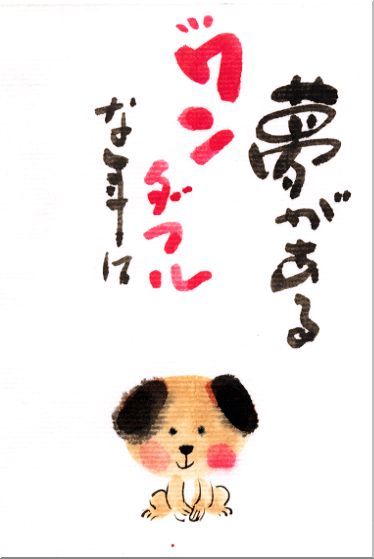 夢がある
ワンダフル
な年に